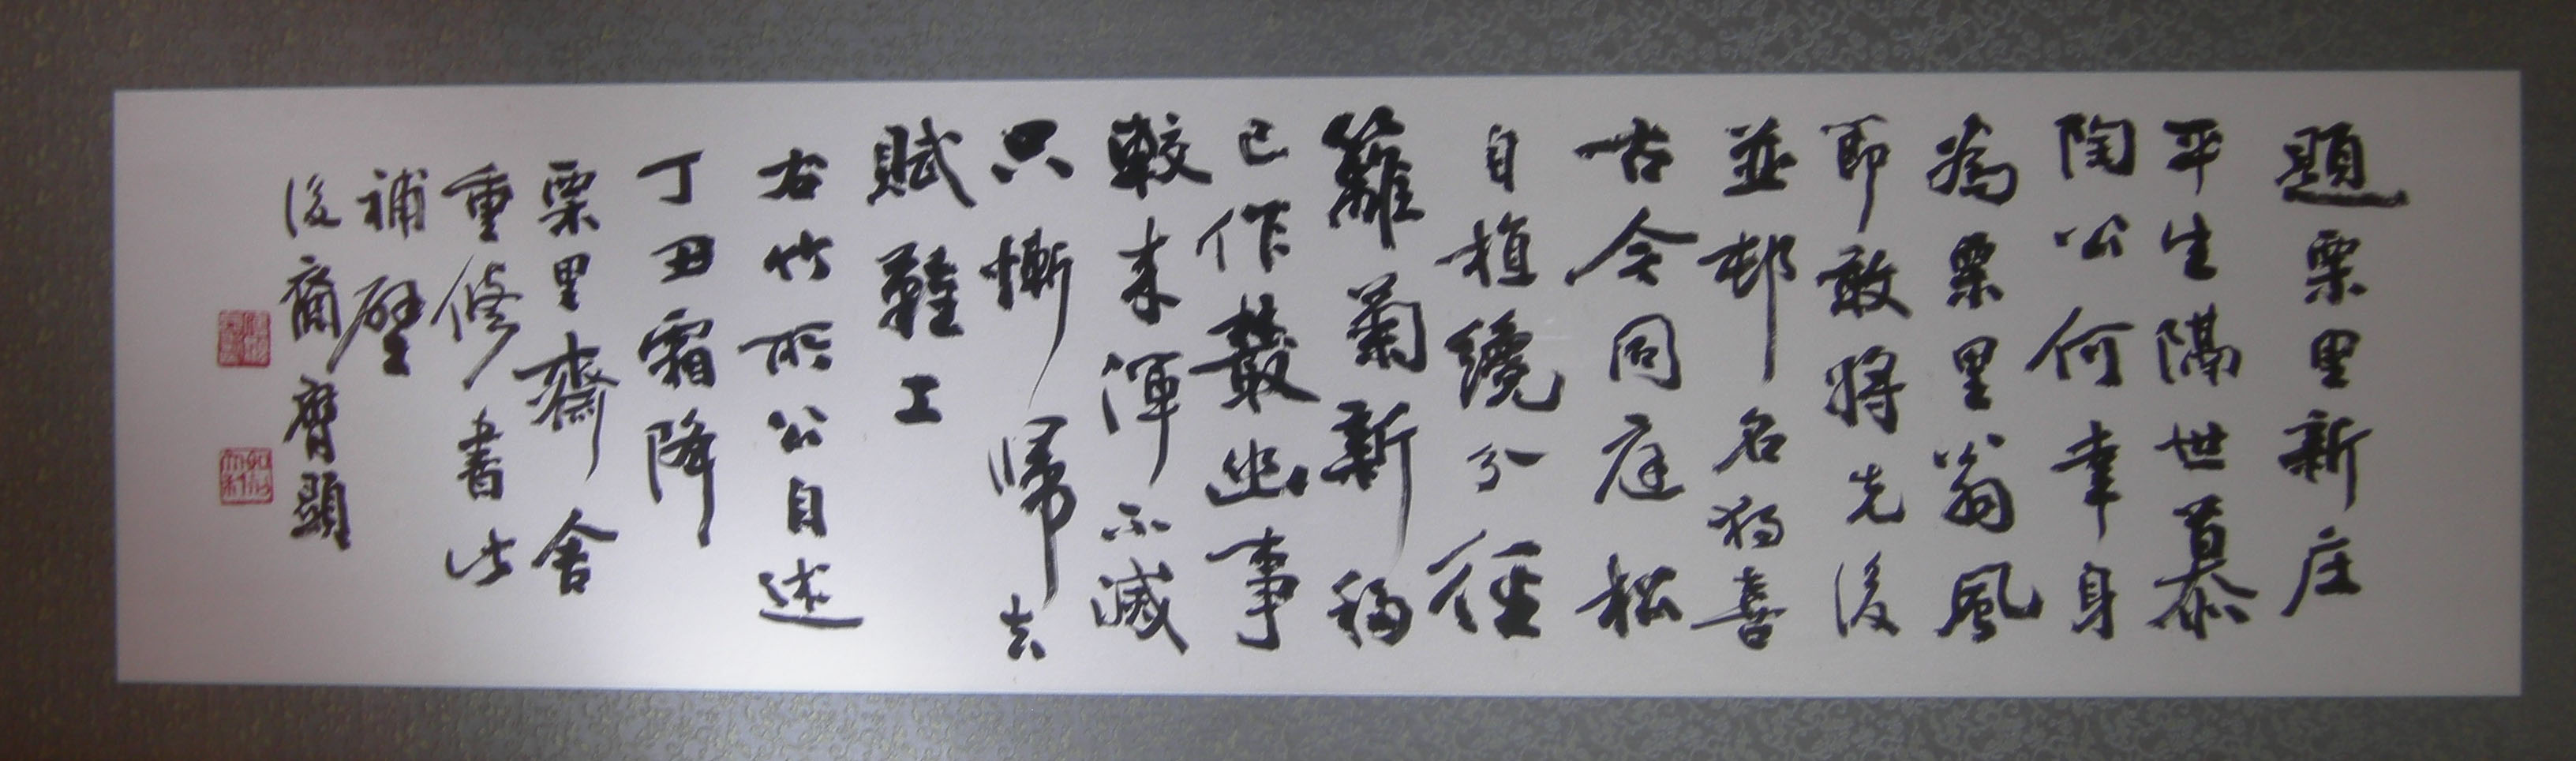 題栗里新庄
平生隔世慕
陶公何幸身
為栗里翁風
節敢將先後
並邨名猶喜
古今同庭松
自植繞分徑
籬菊新移
已作叢幽事
較来渾不減
只慚歸去
賦難工
右竹所公自述
丁丑霜降
栗里齋舍
重修書此
補壁
後裔 顯